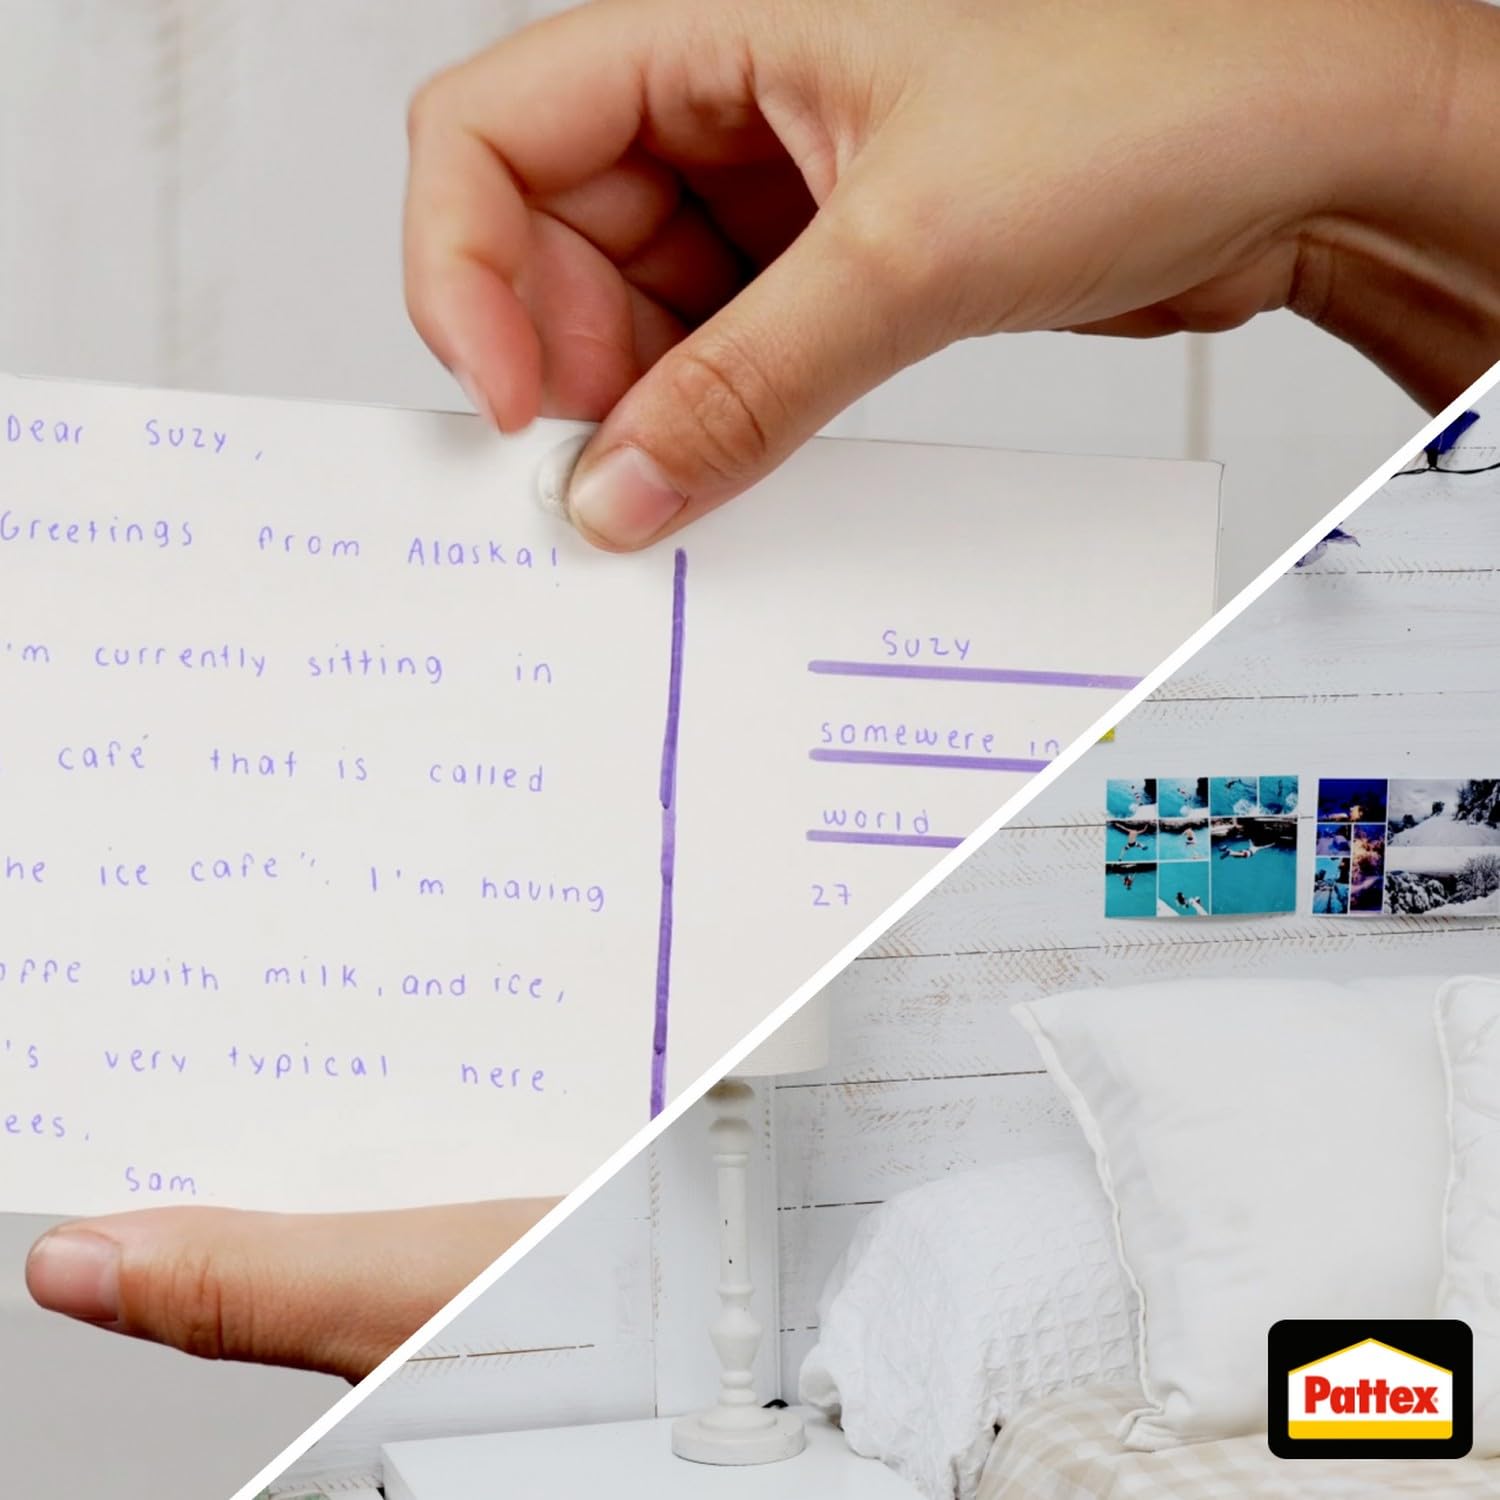 Dear Suzy,
Greetings from Alaska!
'm currently sitting in
café that is called
he ice cafe". I'm having
offe with milk, and ice,
's very typical here.
ees,
Sam
Suzy
somewere in
world
27
Pattex